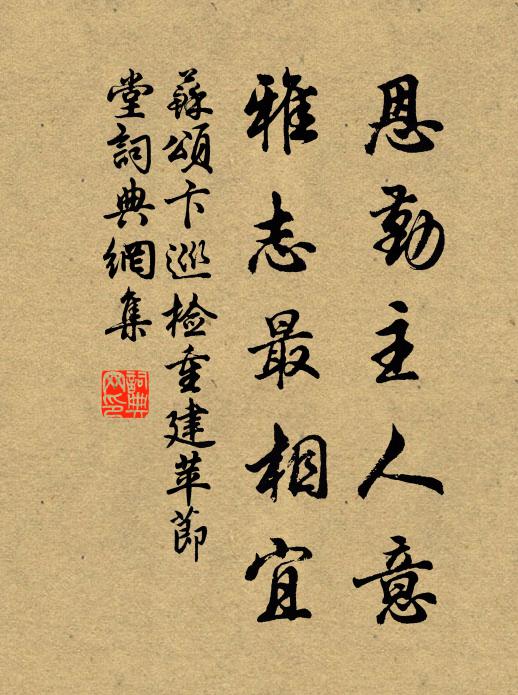 恩勤主人意
雅志最相宜
蘇頌卞巡檢重建萃節
堂詞典網集
詞典
网印